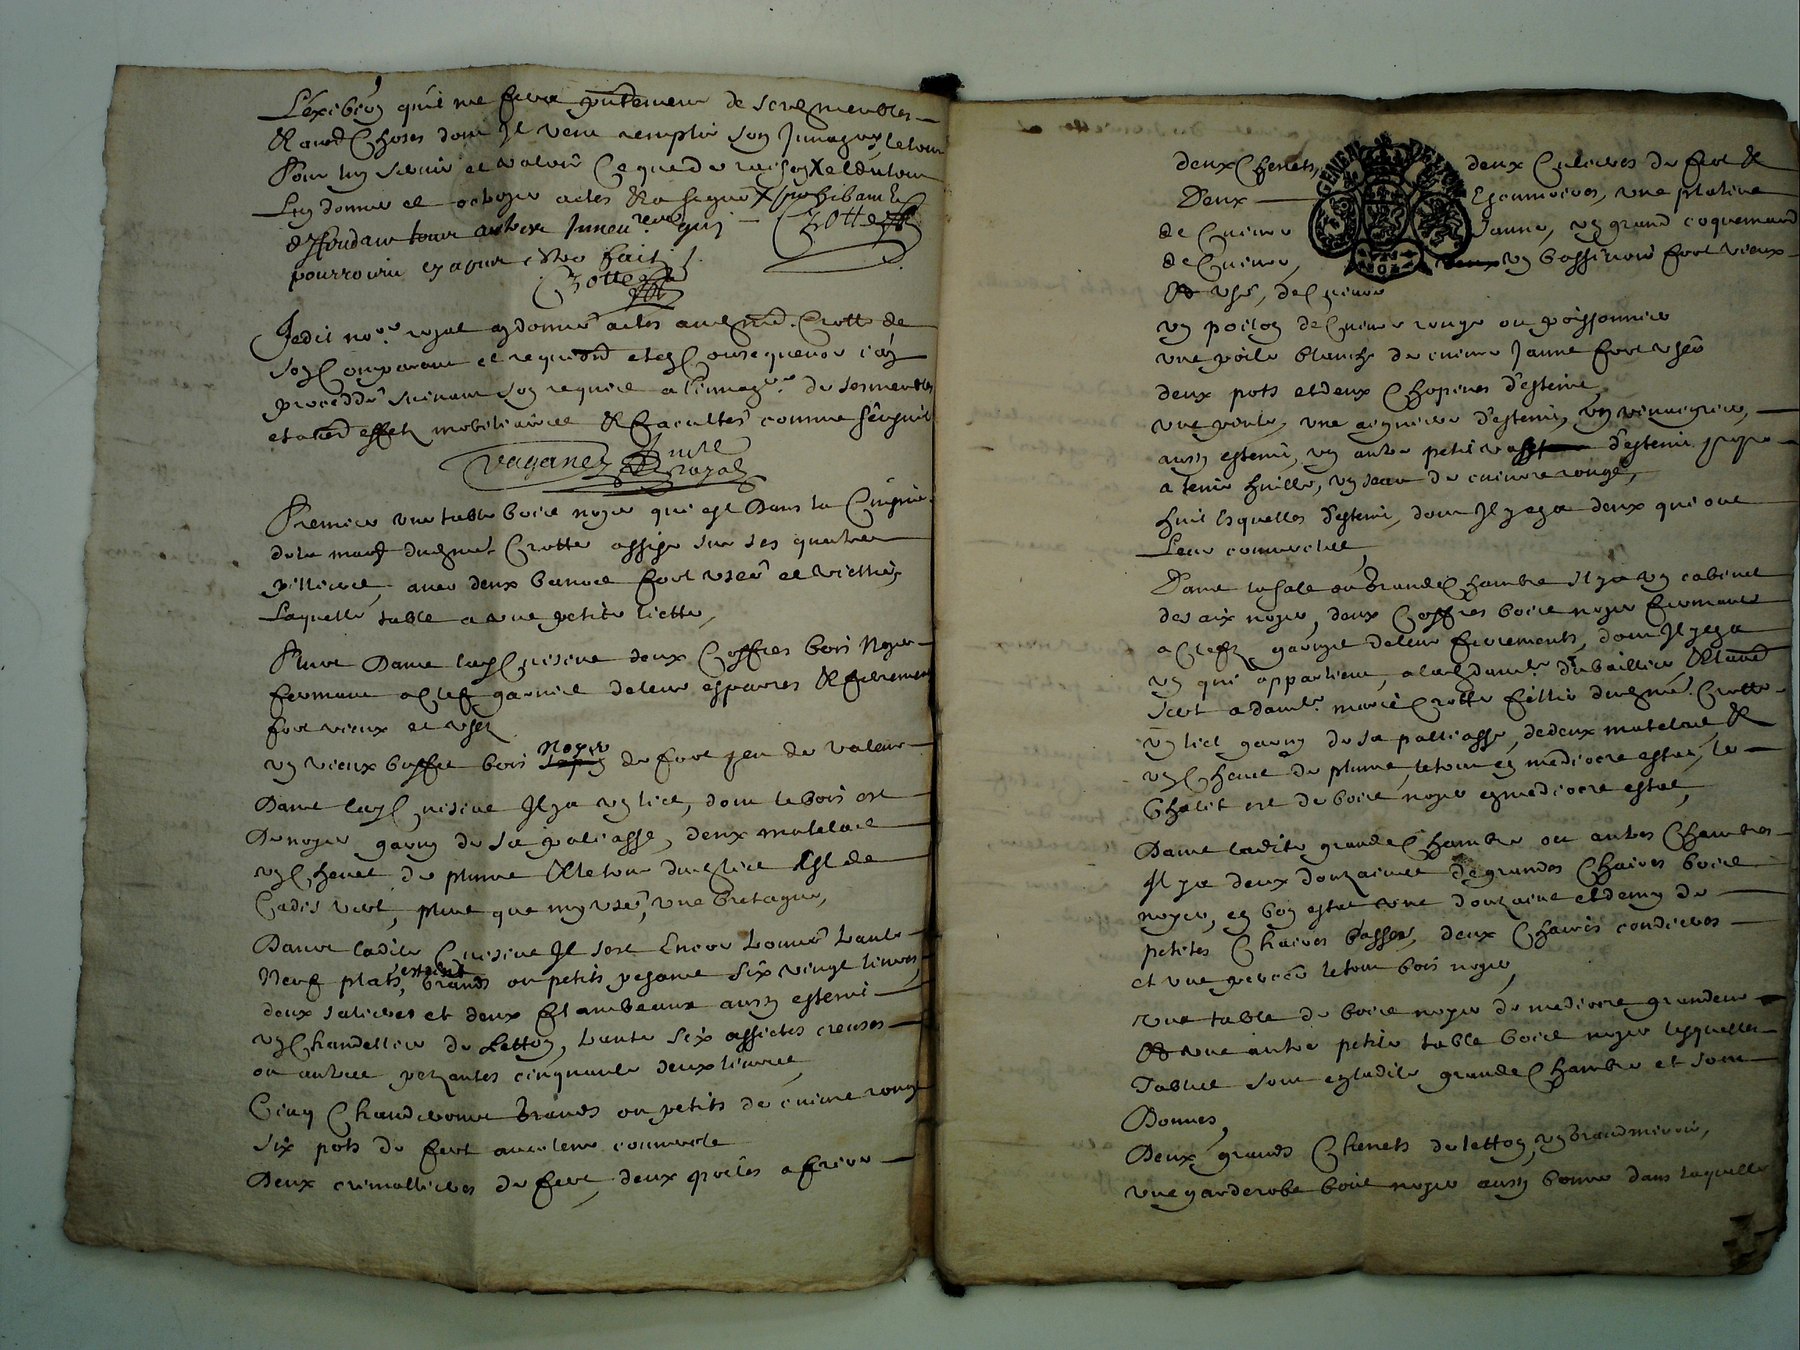 L'exibéon qu'il me fera presentement de ses meubles
& aues choses dont Il veut remplir son Innagre, le tout
Pour luy servir et valoir ce que de raison & du tout
Luy donner et octroyer actes & a signé
deffendant tout autre qui
pourroit en avoir esté fait
Crotte
Crotte
Je dit no.re royal ay donné actes aud Crotte de
son comparant et requis et en consequence j'ay
procedé suivant son requis a l'innag.re de ses meubles
et aues effets mobiliaires & facultés comme s'ensuit
royal
Premier une table bois noyer qui est Dans la Cuisine
de la mais dud Crotte assise sur ses quatre
pilliers, avec deux bancs fort usés et vieux,
Laquelle table a une petite liette,
Plus Dans lad Cuisine deux Coffres bois Noyer
fermant a clef garnis de leur esparres & ferrements
fort vieux et usez
un vieux buffet bois Noyer de fort peu de valeur
Dans lad Cuisine Il y a un lict, dont le bois est
De noyer garny de sa paliasse, deux matelas
un Chevet de plume & le tour dud lict Est de
Cadis vert, plus que my usé, une bretagne,
Dans ladite Cuisine Il s'est Encor trouvé trante
Neuf plats, estain grands ou petits pesant six vingt livres,
deux salieres et deux flambeaux aussy esteni
un Chandellier de Letton, trante six assietes creuses
ou autres pezantes cinquante deux livres,
Cinq Chauderons Grands ou petits de cuivre rouge
six pots de fert avec leur couvercle
Deux cremallieres de fert, deux poiles a frire
deux Chenets, deux Culieres de fert &
Deux Escumoires, une platine
de Cuivre Jaune, un grand coquemard
de Cuivre, un bassinoir fort vieux
& usé, de Cuivre
un poilon de Cuivre rouge ou poissonnier
une poile blanche de cuivre Jaune fort usée
deux pots et deux Chopines d'esteni,
une pinte, une aiguiere d'esteni, un vinaigrier,
aussy esteni, un autre petit d'esteni propre
a tenir huille, un seau de cuivre rouge,
huit Esquelles d'esteni, dont Il y en a deux qui ont
Leur couvercles,
Dans la sale ou Grande Chambre il y a un cabinet
des aix noyer, deux Coffres bois noyer fermants
a Clefz garnys de leur ferrements, dont Il y en a
un qui appartient, a lad dam.lle du baillier & l'aud
sert a dam.lle marie Crotte fillie dud Crotte
un lict garny de sa palliasse, de deux matelats &
un Chevet de plume, le tout en mediocre estat, le
Chalit est de bois noyer en mediocre estat,
Dans ladite grande Chambre ou autres Chambres
Il y a deux douzaines de grandes Chaires bois
noyer, en bon estat une douzaine et demy de
petites Chaires basses, deux Chaires
et une percée le tout bois noyer,
une table de bois noyer de mediocre grandeur
& une autre petite table bois noyer lesquelles
Tables sont en ladite grande Chambre et sont
Bonnes,
Deux grands Chenets de letton, un Grand miroir,
une garderobe bois noyer aussy bonne dans laquelle